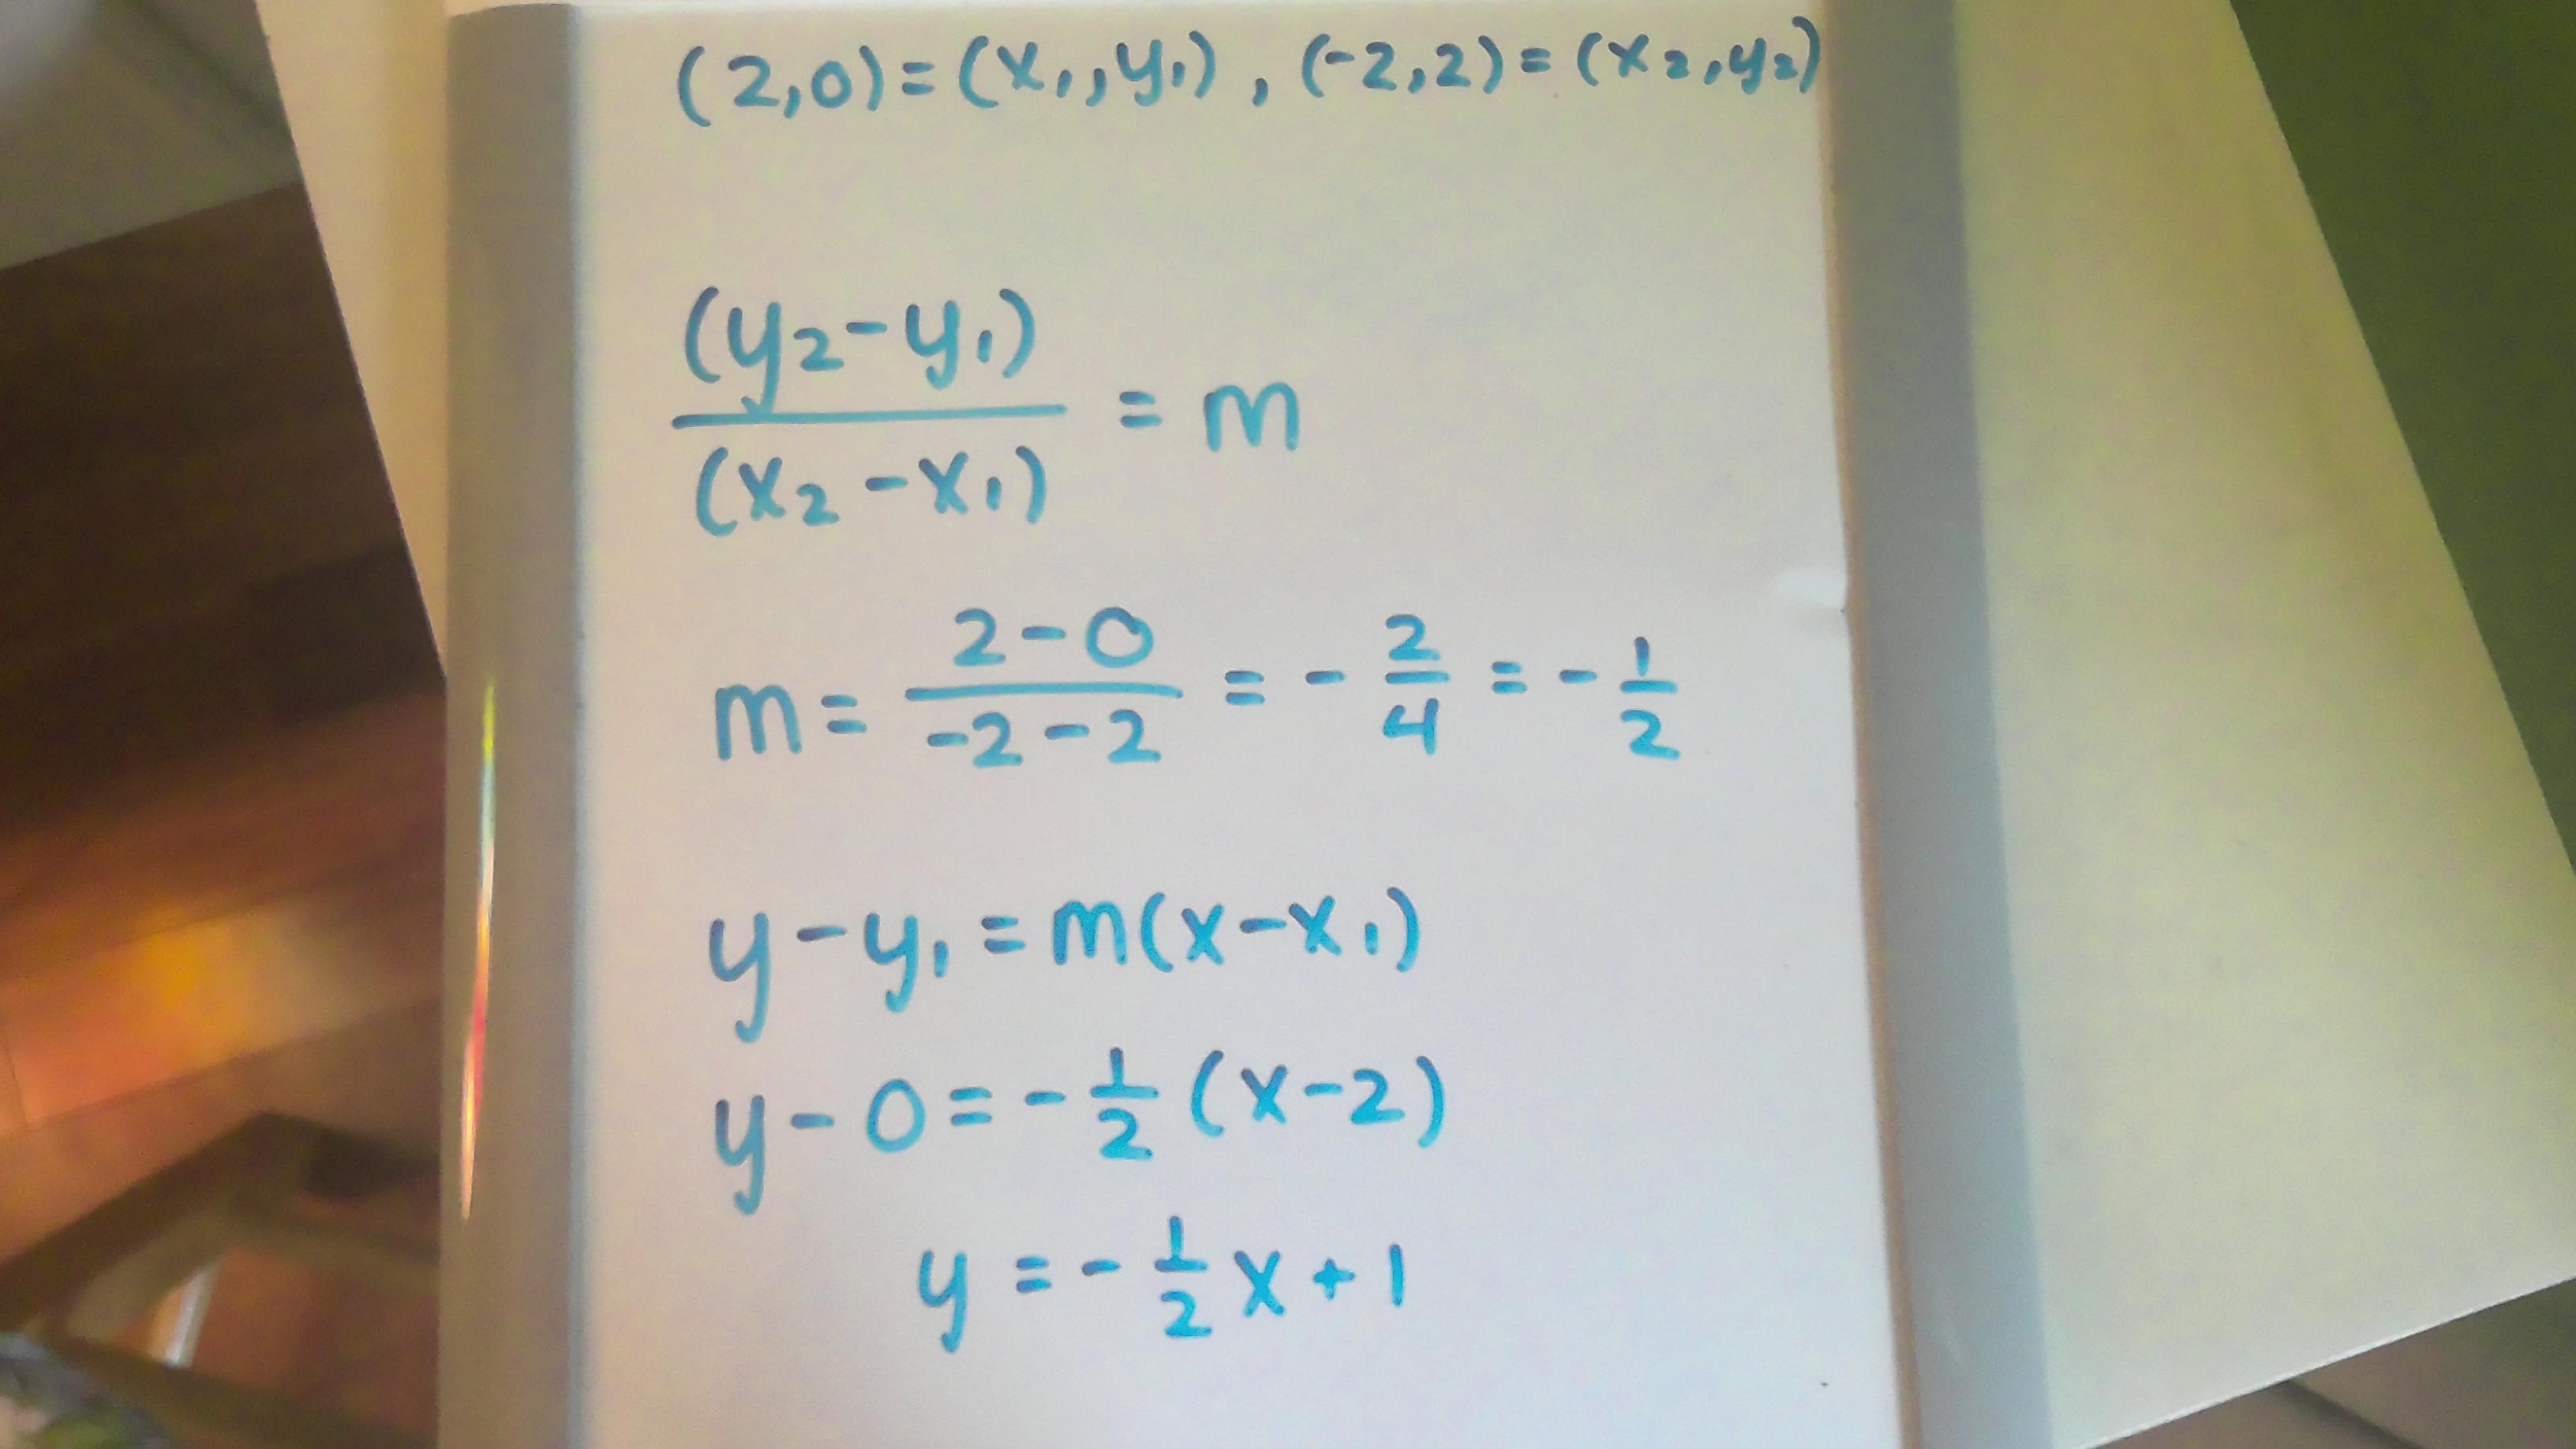 (2,0)=(x₁,y₁), (-2,2)=(x₂,y₂)
(y₂-y₁)/(x₂-x₁) = m
m = (2-0)/(-2-2) = -2/4 = -1/2
y-y₁=m(x-x₁)
y-0=-1/2(x-2)
y=-1/2x+1